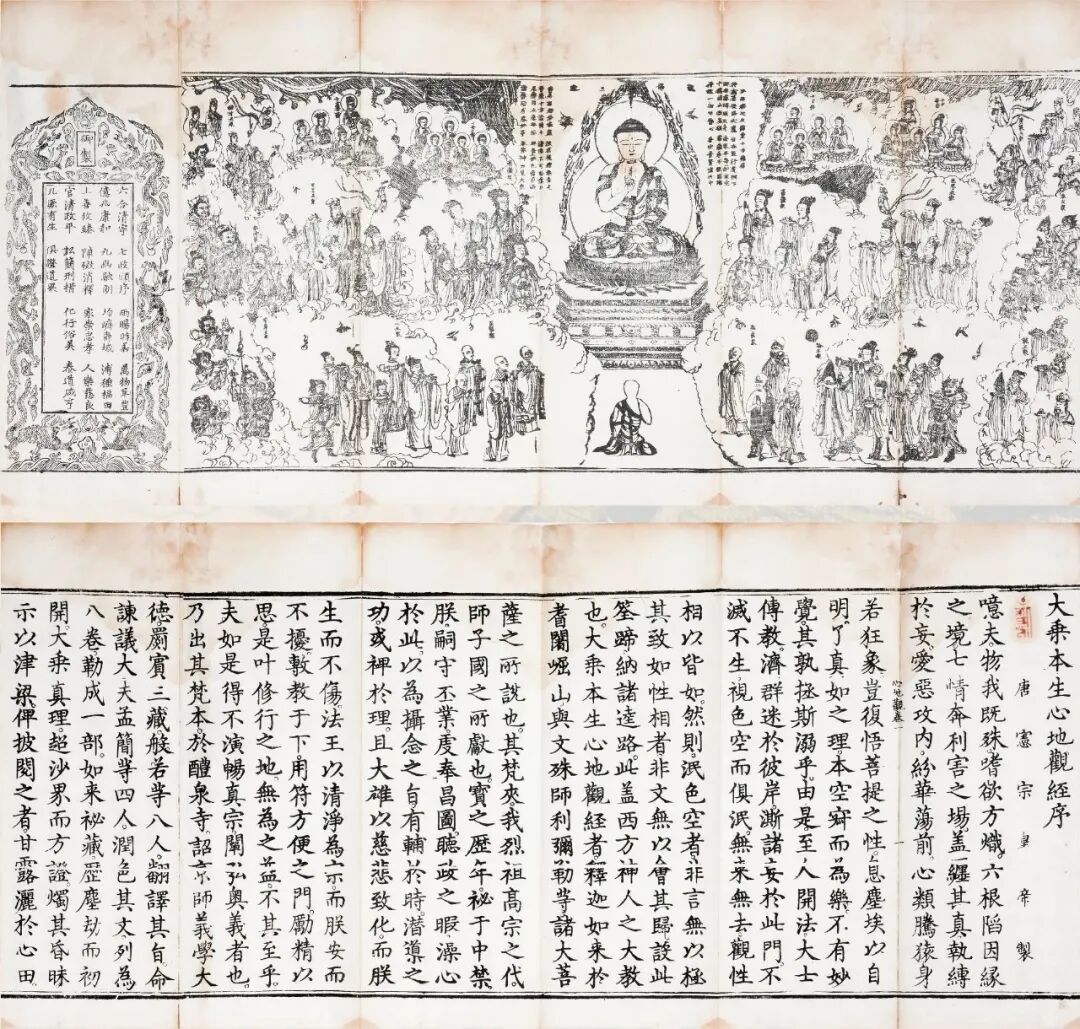 御製
六合清寧 七政順序 雨暘時若 萬物阜豐
億兆康和 九幽融朗 均躋壽域 溥種福田
上善攸臻 障礙消釋 家崇忠孝 人樂慈良
官清政平 訟簡刑措 化行俗美 泰道咸亨
凡厥有生 俱證道果
大乗本生心地觀經序
唐憲宗皇帝製
噫夫。物我既殊。嗜欲方熾。六根陷因緣
之境。七情奔利害之場。盖纒其真。執縛
於妄。愛惡攻内。紛華蕩前。心類騰猿。身
心地觀卷一 一
若狂象。豈復悟菩提之性。息塵埃以自
明。了真如之理。本空寂而為樂。不有妙
覺。其孰拯斯溺乎。由是至人開法。大士
傳教。濟群迷於彼岸。澌諸妄於此門。不
滅不生。視色空而俱泯。無来無去。觀性
相以皆如。然則。泯色空者。非言無以極
其致。如性相者。非文無以會其歸。設此
筌蹄。納諸逵路。此盖西方神人之大教
也。大乗本生心地觀經者。釋迦如来於
耆闍崛山。與文殊師利彌勒等諸大菩
薩之所說也。其梵來。我烈祖高宗之代。
師子國之所獻也。寳之歴年。秘于中禁。
朕嗣守丕業。虔奉昌圖。聽政之暇。澡心
於此。以為攝念之旨。有輔於時。潛導之
功。或裨於理。且大雄以慈悲致化。而朕
生而不傷。法王以清淨為宗。而朕安而
不擾。敷教于下。用符方便之門。勵精以
思。是叶修行之地。無為之益。不其至乎。
夫如是。得不演暢真宗。闡弘奥義者也。
乃出其梵本。於醴泉寺。詔京師義學大
德。罽賓三藏般若等八人。翻譯其旨。命
諫議大夫孟簡等四人。潤色其文。列為
八卷。勒成一部。如来秘藏。歴塵劫而初
開。大乗真理。超沙界而方證。燭其昏昧。
示以津梁。俾披閱之者。甘露灑於心田。